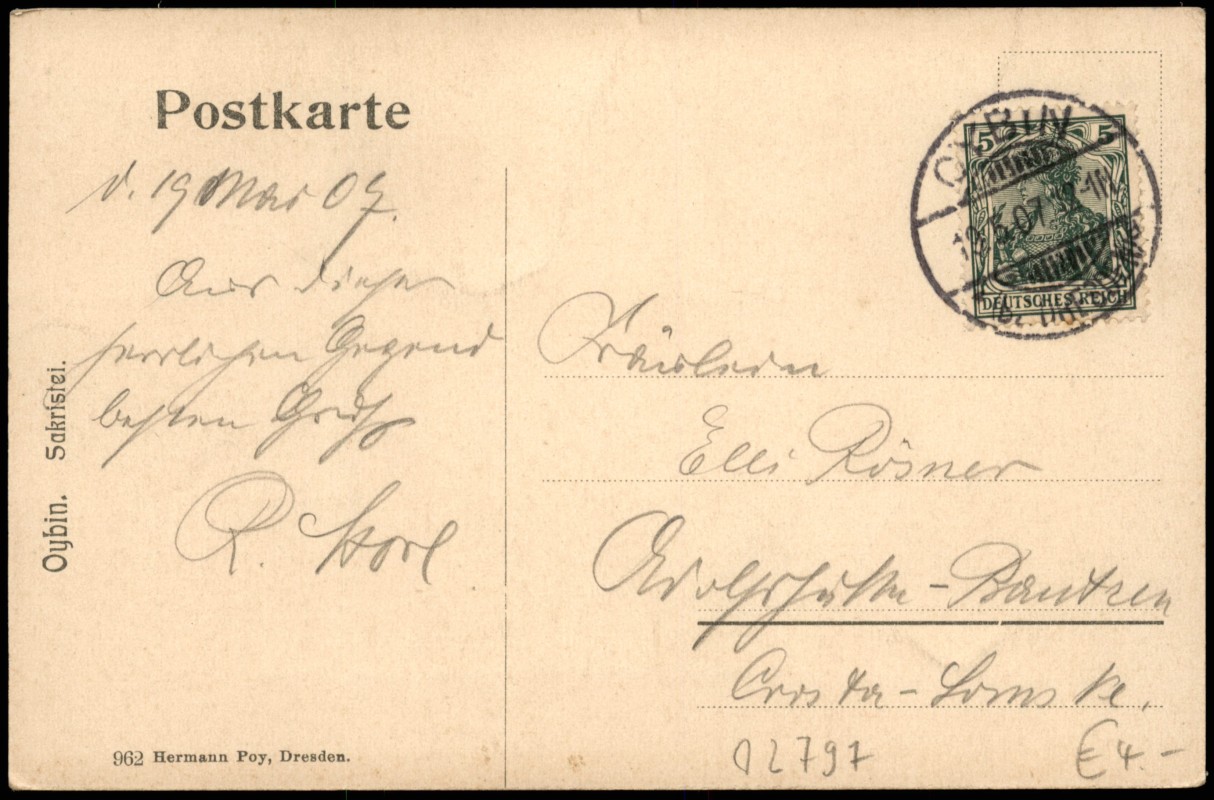 Postkarte
d. 19 Mai 07.
Aus dieser
herrlichen Gegend
besten Gruß
R.
Oybin. Sakristei.
962 Hermann Poy, Dresden.
OYBIN
5 5
DEUTSCHES REICH
Fräulein
Elli Rösner
Adolfshütte - Bautzen
Crosta - Lomske.
02797
€ 4.-